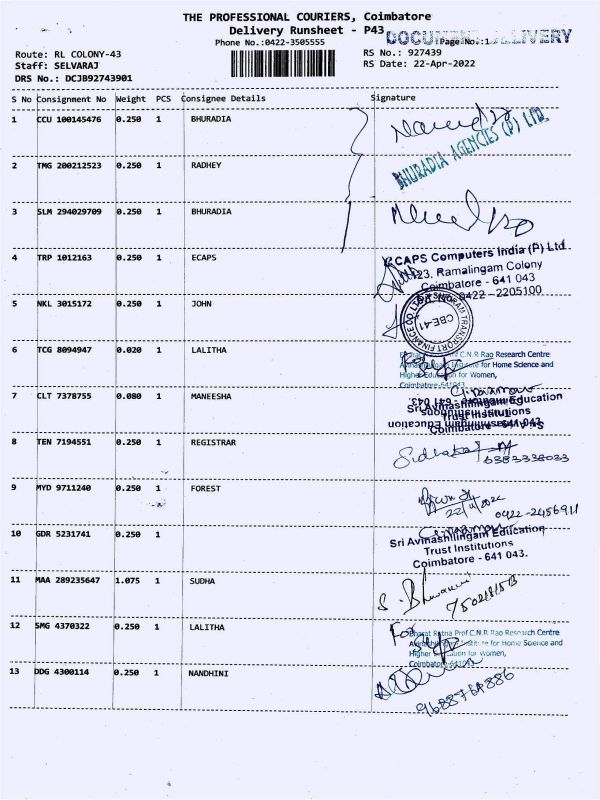 THE PROFESSIONAL COURIERS, Coimbatore
Delivery Runsheet - P43
Phone No.:0422-3505555
Page No.:1
Route: RL COLONY-43
RS No.: 927439
Staff: SELVARAJ
RS Date: 22-Apr-2022
DRS No.: DCJB92743901
S No Consignment No Weight PCS Consignee Details Signature
1 CCU 100145476 0.250 1 BHURADIA
BHURADIA AGENCIES (P) LTD.
2 TMG 200212523 0.250 1 RADHEY
3 SLM 294029709 0.250 1 BHURADIA
4 TRP 1012163 0.250 1 ECAPS
ECAPS Computers India (P) Ltd.
23, Ramalingam Colony
Coimbatore - 641 043
0422 - 2205100
5 NKL 3015172 0.250 1 JOHN
TRANSPORT FINANCE CO LTD
CBE-41
6 TCG 8094947 0.020 1 LALITHA
Prof C.N.R Rao Research Centre
Institute for Home Science and
Higher Education for Women,
Coimbatore-641043
7 CLT 7378755 0.080 1 MANEESHA
Sri Avinashilingam Education
Trust Institutions
Coimbatore - 641 043
8 TEN 7194551 0.250 1 REGISTRAR
6383338033
9 MYD 9711240 0.250 1 FOREST
0422-2456911
10 GDR 5231741 0.250 1
Sri Avinashilingam Education
Trust Institutions
Coimbatore - 641 043.
11 MAA 289235647 1.075 1 SUDHA
12 SMG 4370322 0.250 1 LALITHA
For
Bharat Ratna Prof.C.N.R Rao Research Centre
Avinashilingam Institute for Home Science and
Higher Education for Women,
Coimbatore-641043
13 DDG 4300114 0.250 1 NANDHINI